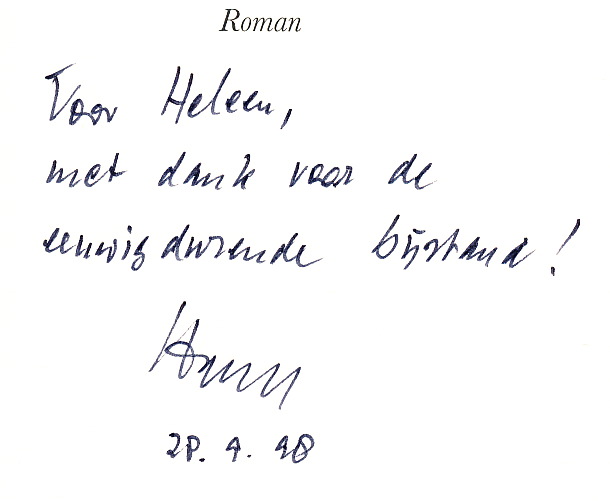 Roman
Voor Heleen,
met dank voor de
eeuwigdurende bijstand!
Harry
28. 9. 98